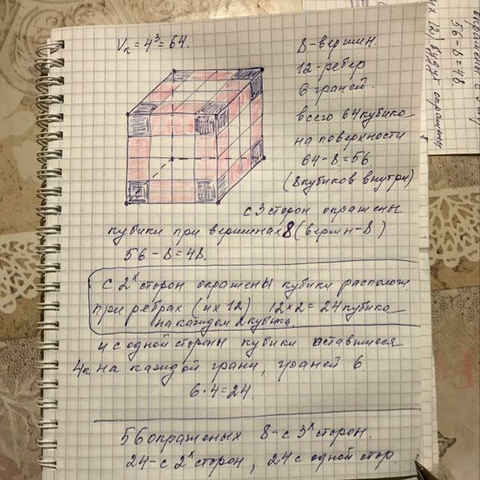 Vк = 4³ = 64.
8 - вершин.
12 - ребер
6 граней.
всего 64 кубико
на поверхности
64 - 8 = 56
(8 кубиков внутри)
с 3 сторон окрашены
кубики при вершинах 8 (вершин - 8)
56 - 8 = 48.
с 2ˣ сторон окрашены кубики располож
при ребрах (их 12) 12 × 2 = 24 кубика
на каждом 2 кубика.
и с одной стороны кубики оставшиеся
4к на каждой грани, граней 6.
6 · 4 = 24.
56 окрашеных 8 - с 3ˣ сторон.
24 - с 2ˣ сторон, 24 с одной стор
56 - 8 = 48